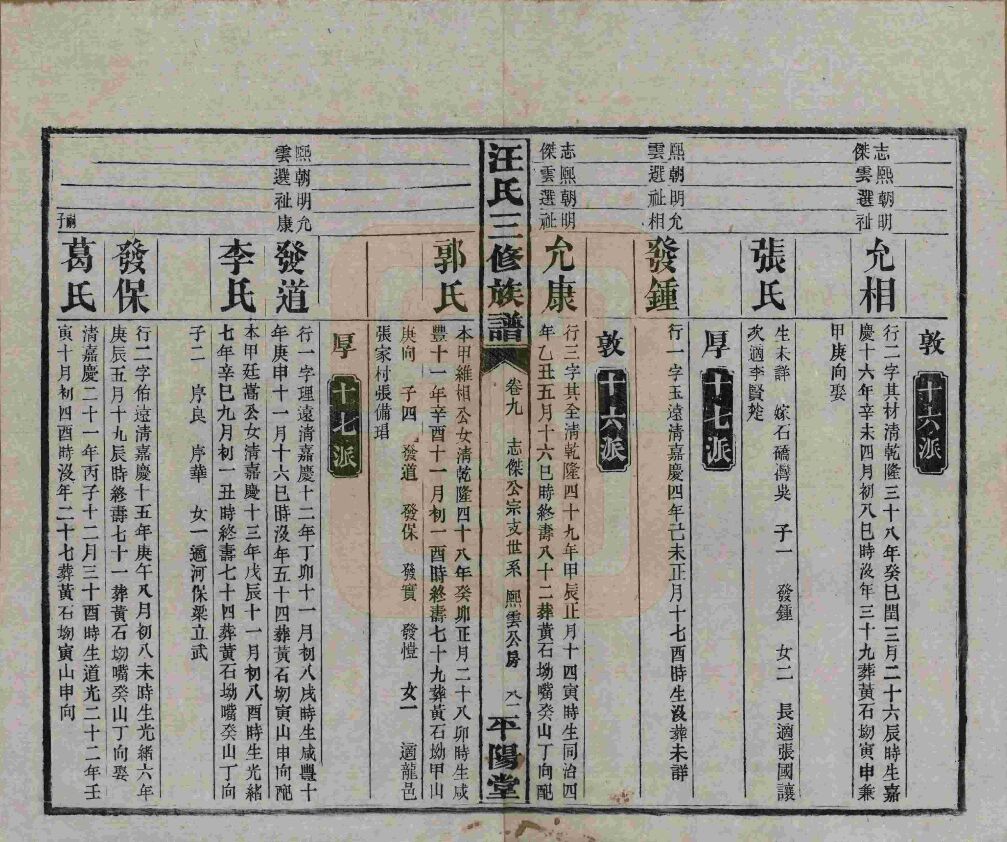 敦
十六派
志熙朝明
傑雲選祉
允相
行二字其材清乾隆三十八年癸巳閏三月二十六辰時生嘉
慶十六年辛未四月初八巳時沒年三十九葬黃石坳寅申兼
甲庚向娶
張氏
生未詳 嫁石礄灣吳 子一 發鍾 女二 長適張國讓
次適李賢楚
厚
十七派
熙朝明允
雲選祉相
發鍾
行一字玉遠清嘉慶四年己未正月十七酉時生沒葬未詳
敦
十六派
志熙朝明
傑雲選祉
允康
行三字其全清乾隆四十九年甲辰正月十四寅時生同治四
年乙丑五月十六巳時終壽八十二葬黃石坳嘴癸山丁向配
汪氏三修族譜
卷九 志傑公宗支世系 熙雲公房 八二
平陽堂
郭氏
本甲維相公女清乾隆四十八年癸卯正月二十八卯時生咸
豐十一年辛酉十一月初一酉時終壽七十九葬黃石坳甲山
庚向 子四 發道 發保 發實 發愷 女一 適龍邑
張家村張備瑁
厚
十七派
熙朝明允
雲選祉康
發道
行一字理遠清嘉慶十二年丁卯十一月初八戌時生咸豐十
年庚申十一月十六巳時沒年五十四葬黃石坳寅山申向配
李氏
本甲廷嵩公女清嘉慶十三年戊辰十一月初八酉時生光緒
七年辛巳九月初一丑時終壽七十四葬黃石坳嘴癸山丁向
子二 序良 序華 女一適河保梁立武
發保
行二字佑遠清嘉慶十五年庚午八月初八未時生光緒六年
庚辰五月十九辰時終壽七十一葬黃石坳嘴癸山丁向娶
嗣子
葛氏
清嘉慶二十一年丙子十二月三十酉時生道光二十二年壬
寅十月初四酉時沒年二十七葬黃石坳寅山申向